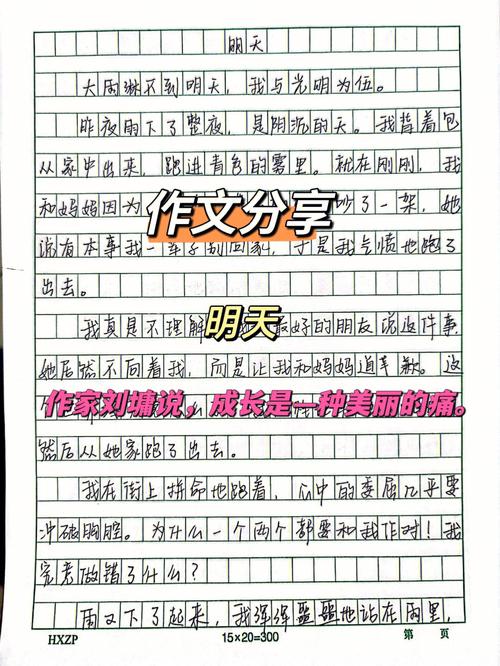 明天
大雨淋不到明天，我与光明为伍。
昨夜雨下了整夜，是阴沉的天。我背着包
从家中出来，跑进青色的雾里。就在刚刚，我
和妈妈因为
吵了一架，她
作文分享
说有本事我一辈子别回家，于是我气愤地跑了
出去。
我真是不理解
最好的朋友说这件事
明天
她居然不向着我，而是让我和妈妈道歉。这
作家刘墉说，成长是一种美丽的痛。
然后从她家跑了出去。
我在街上拼命地跑着，心中的委屈几乎要
冲破胸腔。为什么一个两个都要和我作对！我
究竟做错了什么？
雨又下了起来，我浑浑噩噩地站在雨里，
HXZP
15×20=300
第 页